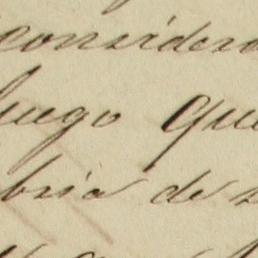 considero
luego que
bria de